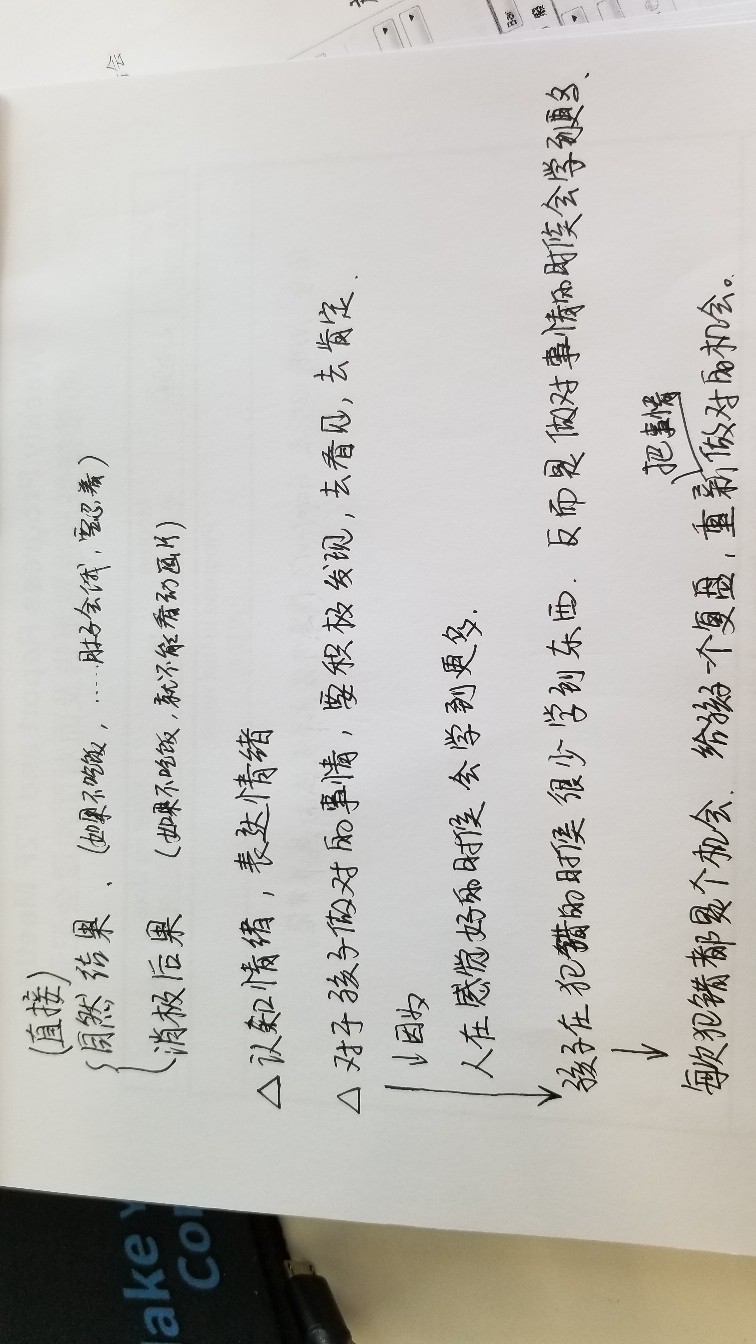 (直接)
自然结果、(如果不吃饭,……肚子会饿,要忍着)
消极后果 (如果不吃饭,就不能看动画片)
△ 认知情绪,表达情绪
△ 对于孩子做对的事情,要积极发现,去看见,去肯定.
↓因为
人在感觉好的时候会学到更多.
孩子在犯错的时候很少学到东西. 反而是做对事情的时候会学到更多.
↓
把事情
每次犯错都是个机会. 给孩子一个复盘,重新做对的机会。
ake Y
Co